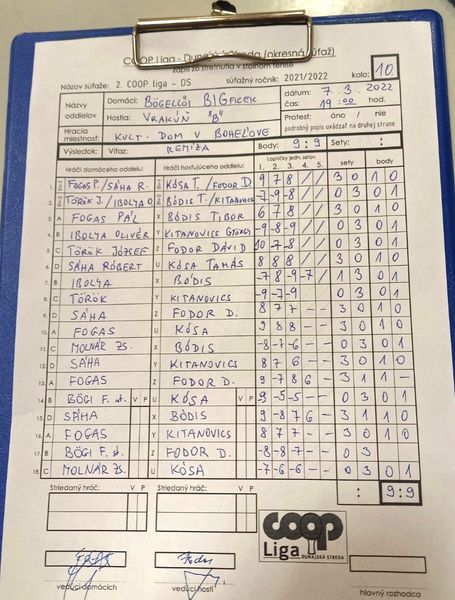 COOP Liga - Dunajská Streda (okresná súťaž)
zápis zo stretnutia v stolnom tenise
Názov súťaže: 2. COOP liga - DS súťažný ročník: 2021/2022 kolo: 10
Názvy oddielov Domáci: BÖGELLÖI BIGFICEK dátum: 7. 3. 2022
Hostia: VRAKÚŇ "B" čas: 19:00 hod
Hracia miestnosť: KULT. DOM V BOHEĽOVE Protest: áno / nie
podrobný popis uvádzať na druhej strane.
Výsledok: Víťaz: REMÍZA Body: 9:9 Sety: :
Hráči domáceho oddielu: Hráči hosťujúceho oddielu Loptičky jedn. setov sety body
1. 2. 3. 4. 5.
1. FOGAS P./SÁHA R. KÓSA T. / FODOR D 9 7 8 / / 3 0 1 0
2. TÖRÖK J./IBOLYA O. BÓDIS T./KITANOVICS -9 -8 -9 / / 0 3 0 1
3. A FOGAS PÁL X BÓDIS TIBOR 6 7 8 / / 3 0 1 0
4. B IBOLYA OLIVÉR Y KITANOVICS GYÖRGY -9 -8 -9 / / 0 3 0 1
5. C TÖRÖK JÓZSEF Z FODOR DÁVID -10 -7 -8 / / 0 3 0 1
6. D SÁHA RÓBERT U KÓSA TAMÁS 8 8 8 / / 3 0 1 0
7. B IBOLYA X BÓDIS -7 8 -9 -7 / 1 3 0 1
8. C TÖRÖK Y KITANOVICS -9 -7 -9 0 3 0 1
9. D SÁHA Z FODOR D. 8 7 7 - - 3 0 1 0
10. A FOGAS U KÓSA 9 8 8 - - 3 0 1 0
11. C MOLNÁR ZS. X BÓDIS -8 -7 -6 - - 0 3 0 1
12. D SÁHA Y KITANOVICS 8 7 6 - - 3 0 1 0
13. A FOGAS Z FODOR D. 9 -7 8 6 - 3 1 1 -
14. B BÖGI F. st. V P U KÓSA V P -9 -5 -5 - - 0 3 0 1
15. D SÁHA X BÓDIS 9 -8 7 6 - 3 1 1 0
16. A FOGAS Y KITANOVICS 8 7 7 - - 3 0 1 0
17. B BÖGI F. st. Z FODOR D. -8 -8 -7 - - 0 3
18. C MOLNÁR ZS. U KÓSA -7 -6 -6 - - 0 3 0 1
Striedaný hráč: V P Striedaný hráč: V P : 9:9
coop
Liga DUNAJSKÁ STREDA
vedúci domácich vedúci hostí hlavný rozhodca